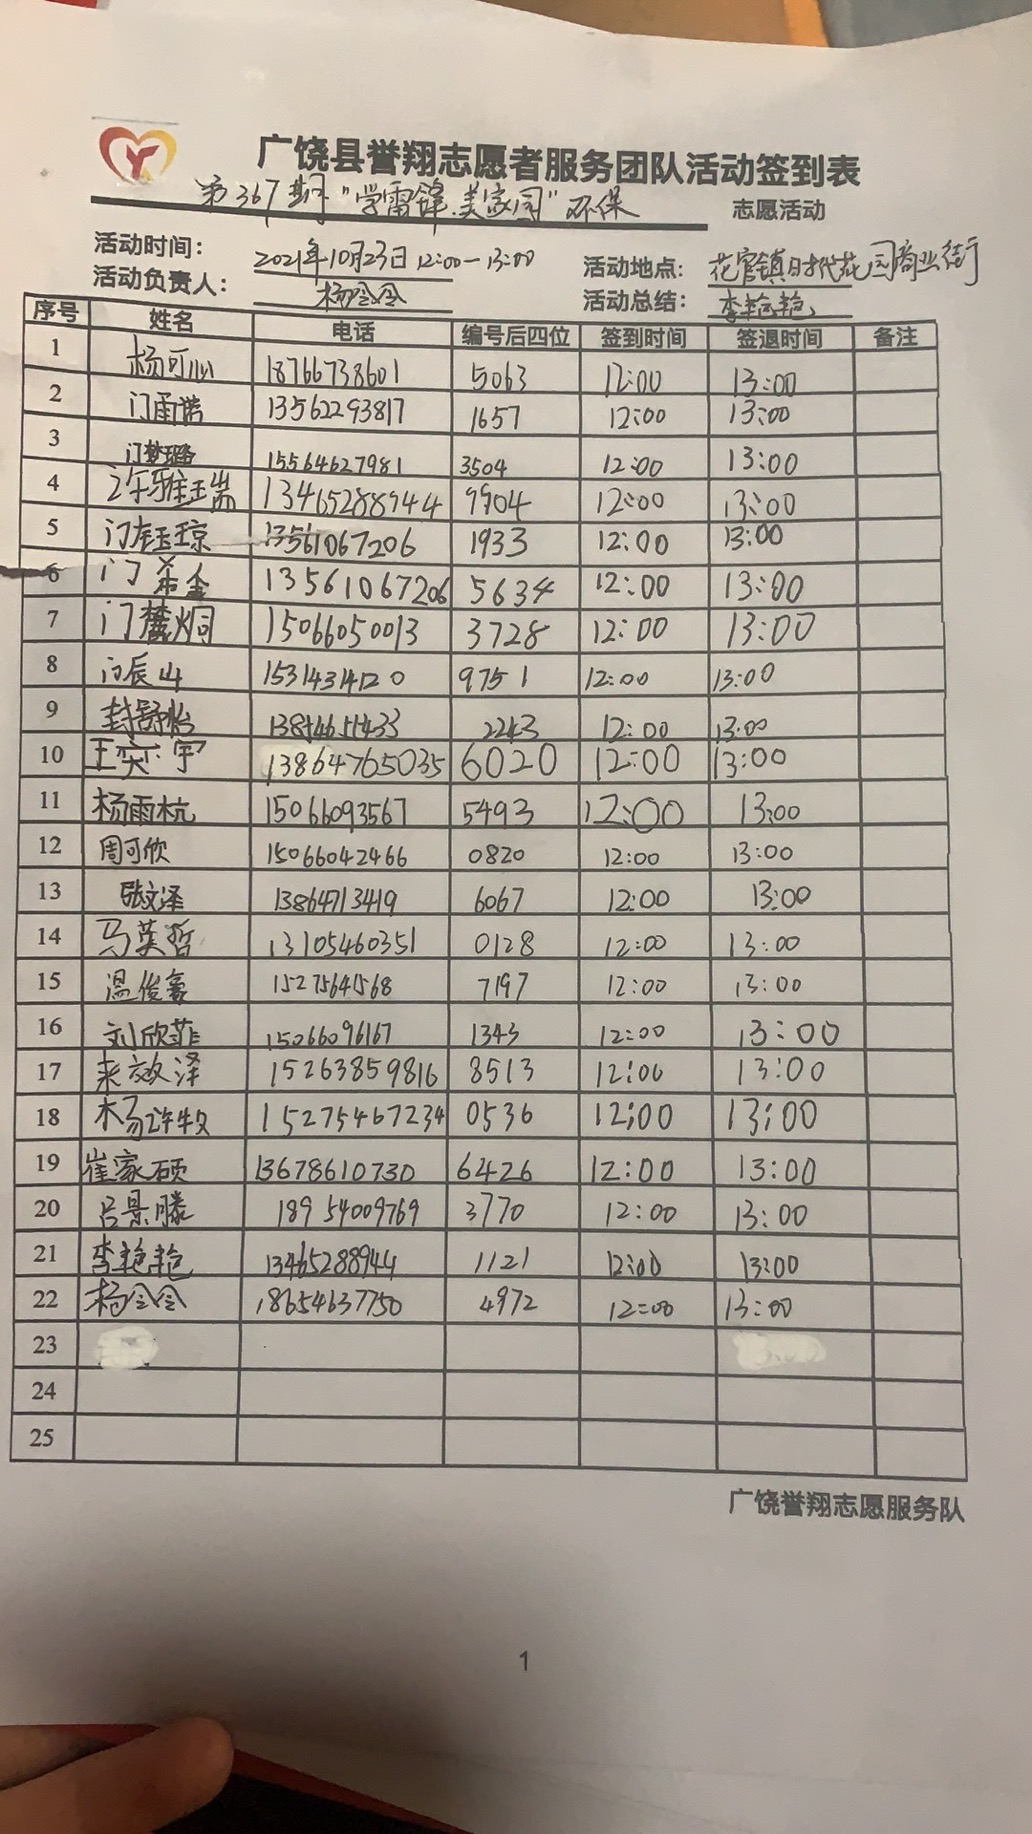 广饶县誉翔志愿者服务团队活动签到表
第367期"学雷锋.美家园"环保 志愿活动
活动时间： 2021年10月23日12:00-13:00 活动地点： 花官镇时代花园商业街
活动负责人： 杨令令 活动总结： 李艳艳
序号 姓名 电话 编号后四位 签到时间 签退时间 备注
1 杨可心 18766738601 5063 12:00 13:00
2 门雨诺 13562293817 1657 12:00 13:00
3 门梦璐 15564627981 3504 12:00 13:00
4 13465288944 9904 12:00 13:00
5 13561067206 1933 12:00 13:00
6 门希金 13561067206 5634 12:00 13:00
7 门麓炯 15066050013 3728 12:00 13:00
8 门辰山 15314314120 9751 12:00 13:00
9 封舒怡 2243 12:00 13:00
10 王奕宇 13864765035 6020 12:00 13:00
11 杨雨杭 15066093567 5493 12:00 13:00
12 周可欣 15066042466 0820 12:00 13:00
13 张文泽 13864713419 6067 12:00 13:00
14 马英哲 13105460351 0128 12:00 13:00
15 温俊豪 15275641568 7197 12:00 13:00
16 刘欣菲 15066096167 1343 12:00 13:00
17 来效泽 15263859816 8513 12:00 13:00
18 杨许牧 15275467234 0536 12:00 13:00
19 崔家硕 13678610730 6426 12:00 13:00
20 吕景滕 18954009769 3770 12:00 13:00
21 李艳艳 13465288944 1121 12:00 13:00
22 杨令令 18654637750 4972 12:00 13:00
23
24
25
广饶誉翔志愿服务队
1